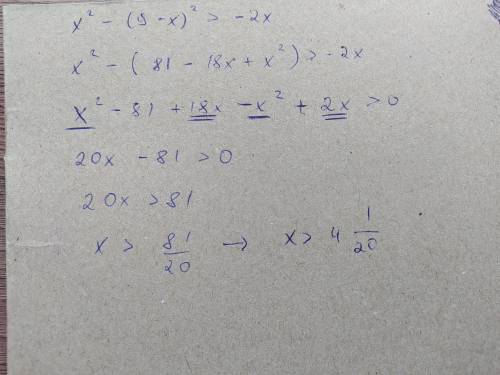 x² - (9 - x)² > -2x
x² - ( 81 - 18x + x² ) > -2x
x² - 81 + 18x - x² + 2x > 0
20x - 81 > 0
20x > 81
x > 81/20 → x > 4 1/20